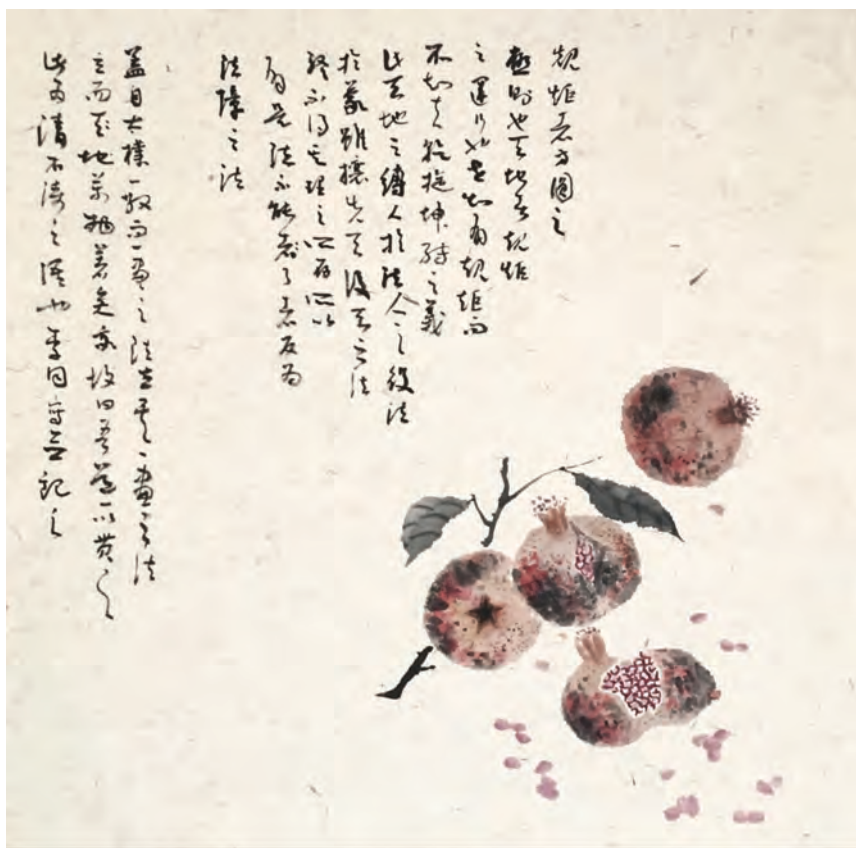 規矩者方圓之
極則也天地者規矩
之運行也世知有規矩而
不知夫乾旋坤轉之義
此天地之縛人於法人之役法
於蒙雖攘先天後天之法
終不得其理之所存所以
有是法不能了者反為
法障之法
蓋自太樸一散而一畫之法立矣一畫之法
立而天地萬物著矣我故曰吾道一以貫之
此為清石濤之語也記之